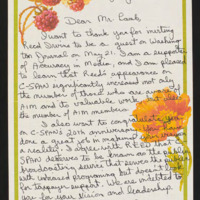 Dear Mr Lamb,
I want to thank you for inviting
Reed Irvine to be a guest on Washing
ton Journal on May 21. I am a supporter
of Accuracy in Media, and I am pleased
to learn that Reed's appearance on
C-SPAN significantly increased not only
the number of those who are aware of
AIM and its valuable work but also
the number of AIM members.
I also want to congratulate you
on C-SPAN's 20th anniversary. You have
done a great job in making your vision
a reality. I agree with REED that C-
SPAN deserves to be known as the public
broadcasting service that serves the public
with balanced programming but doesn't look
for taxpayer support. We are indebted to
you for your vision and leadership.